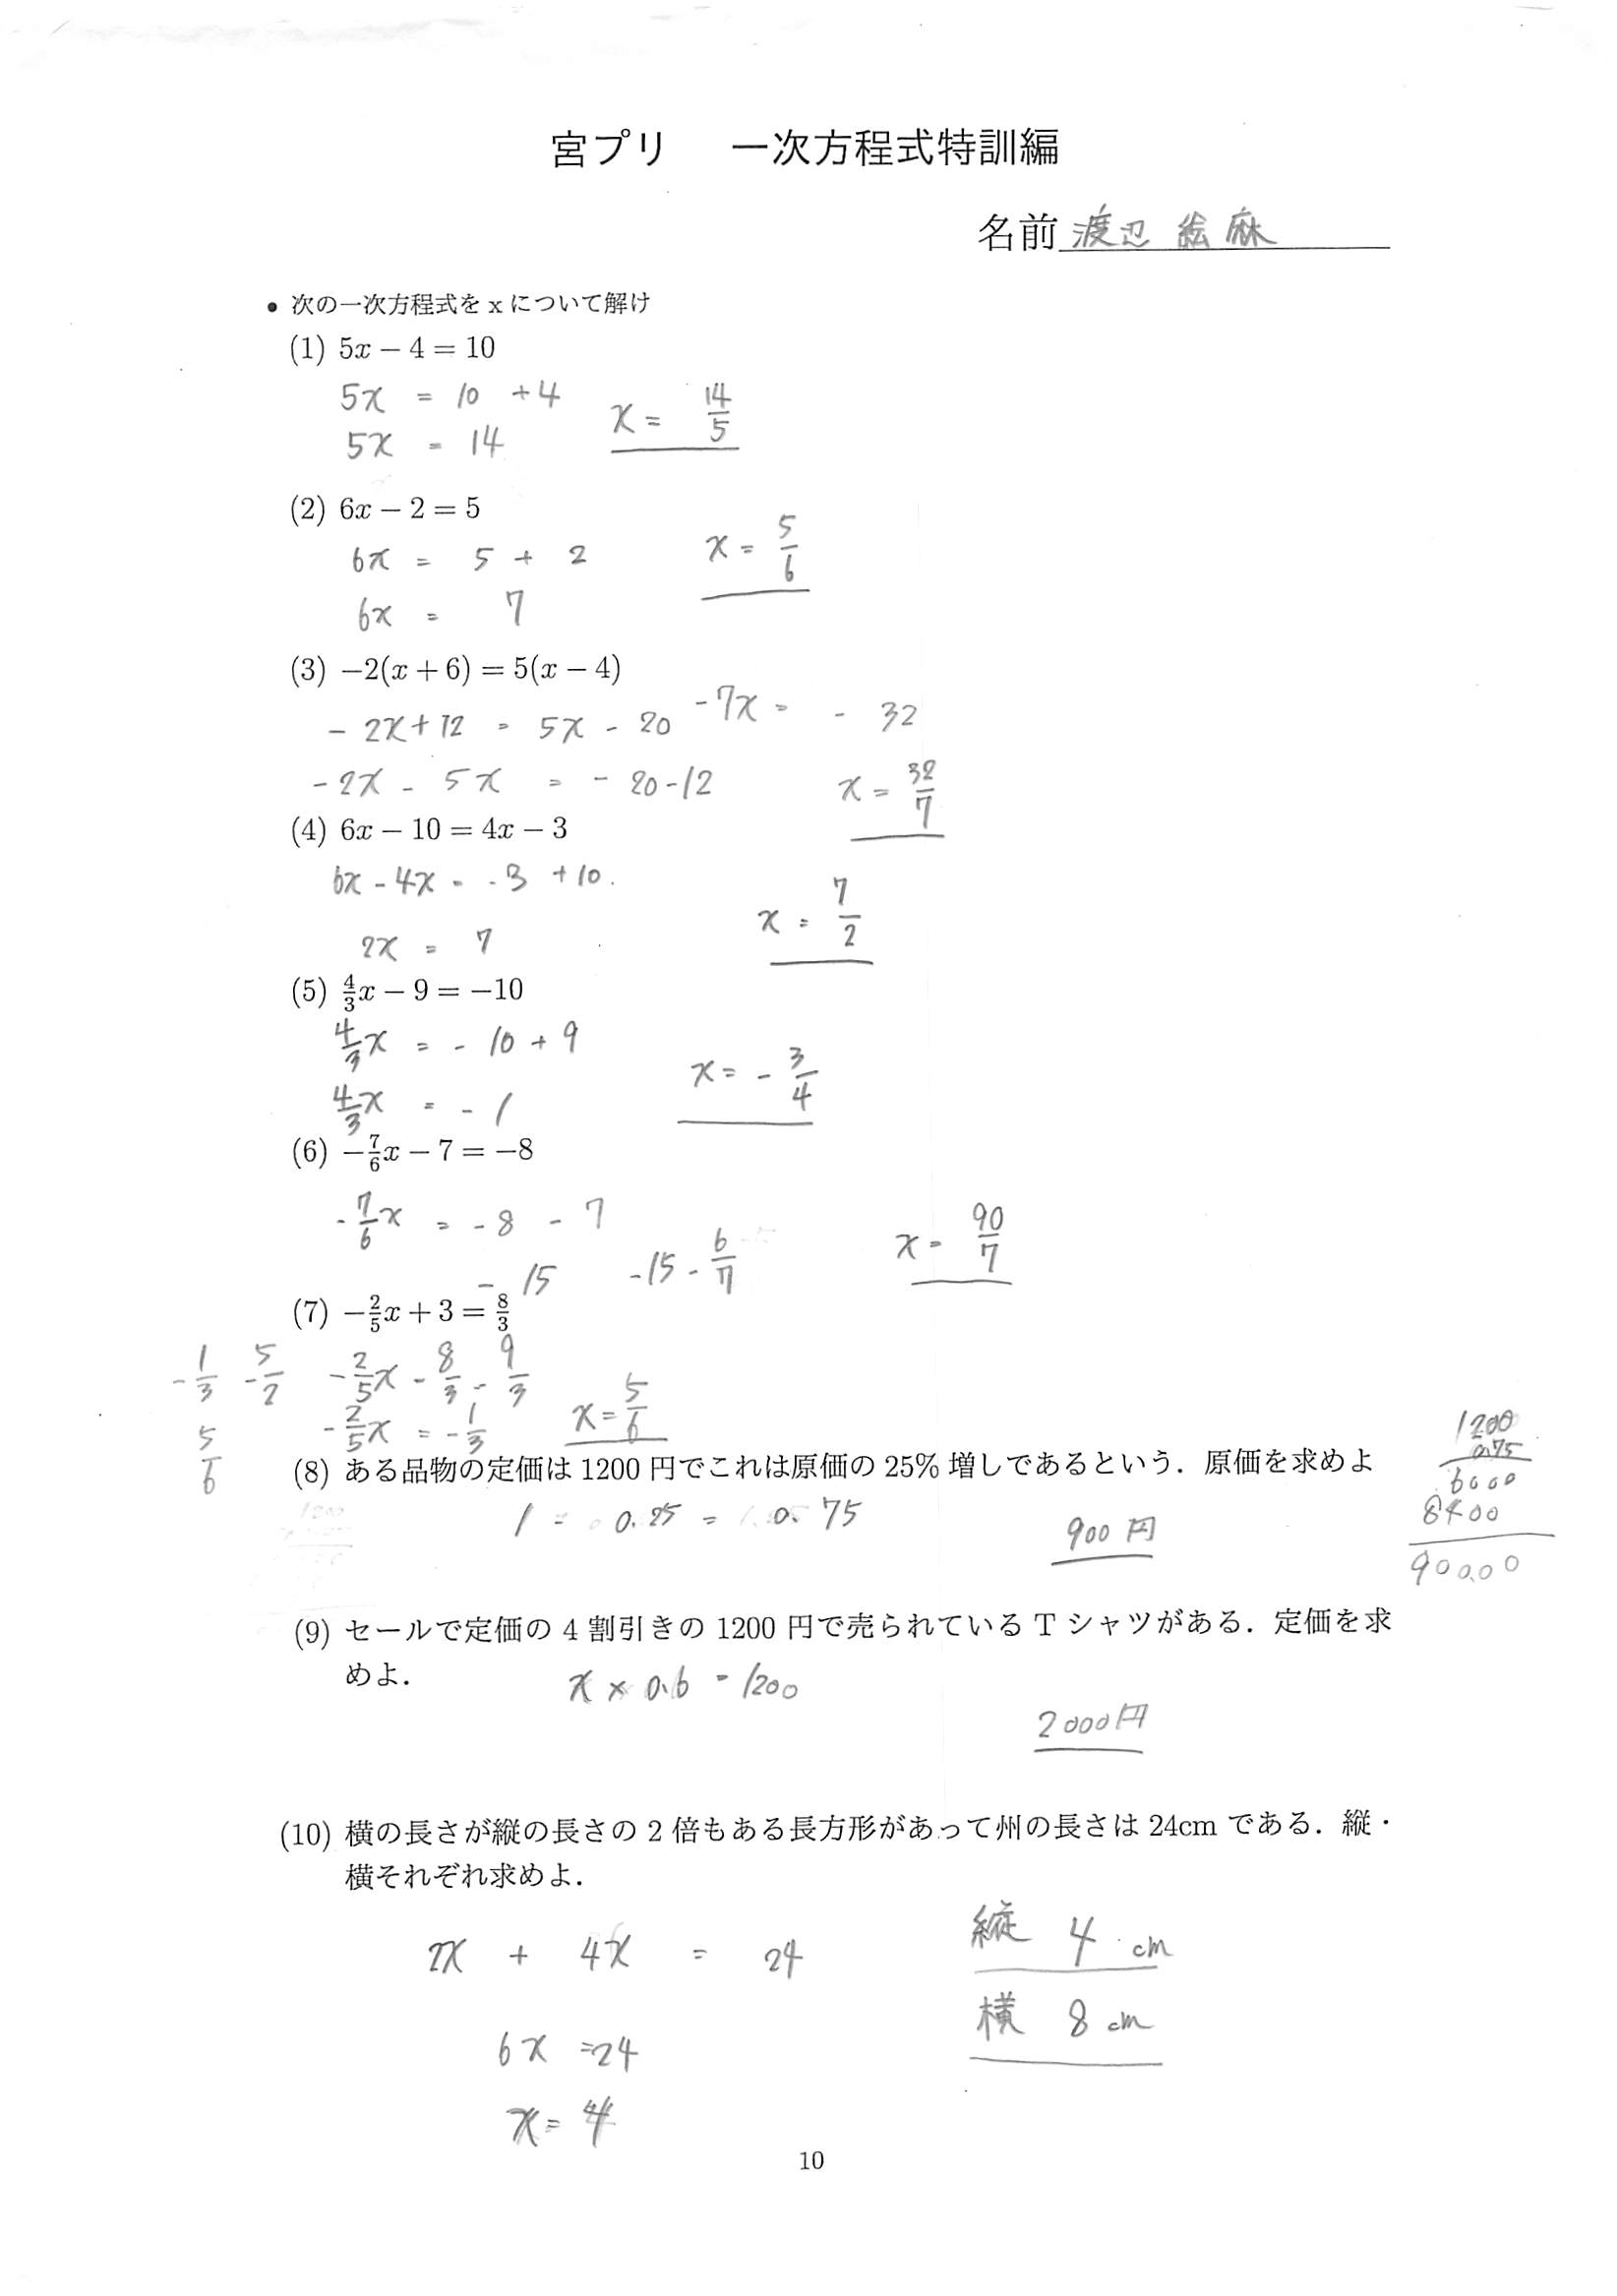 宮プリ 一次方程式特訓編
名前 渡辺 絵麻
• 次の一次方程式を x について解け
(1) 5x − 4 = 10
5x = 10 + 4
5x = 14
x = 14/5
(2) 6x − 2 = 5
6x = 5 + 2
6x = 7
x = 5/6
(3) −2(x + 6) = 5(x − 4)
- 2x + 12 = 5x - 20
- 2x - 5x = - 20 - 12
- 7x = - 32
x = 32/7
(4) 6x − 10 = 4x − 3
6x - 4x = - 3 + 10
2x = 7
x = 7/2
(5) 4/3x − 9 = −10
4/3x = - 10 + 9
4/3x = - 1
x = - 3/4
(6) −7/6x − 7 = −8
- 7/6x = - 8 - 7
- 15 -15 - 6/7
x = 90/7
(7) −2/5x + 3 = 8/3
- 1/3 - 5/2
5/6
- 2/5x = 8/3 - 9/3
- 2/5x = - 1/3
x = 5/6
(8) ある品物の定価は 1200 円でこれは原価の 25% 増しであるという．原価を求めよ
1 - 0.25 = 0.75
900 円
1200
0.75
6000
8400
900.00
(9) セールで定価の 4 割引きの 1200 円で売られている T シャツがある．定価を求
めよ．
x × 0.6 = 1200
2000円
(10) 横の長さが縦の長さの 2 倍もある長方形があって州の長さは 24cm である．縦・
横それぞれ求めよ．
2x + 4x = 24
6x = 24
x = 4
縦 4 cm
横 8 cm
10